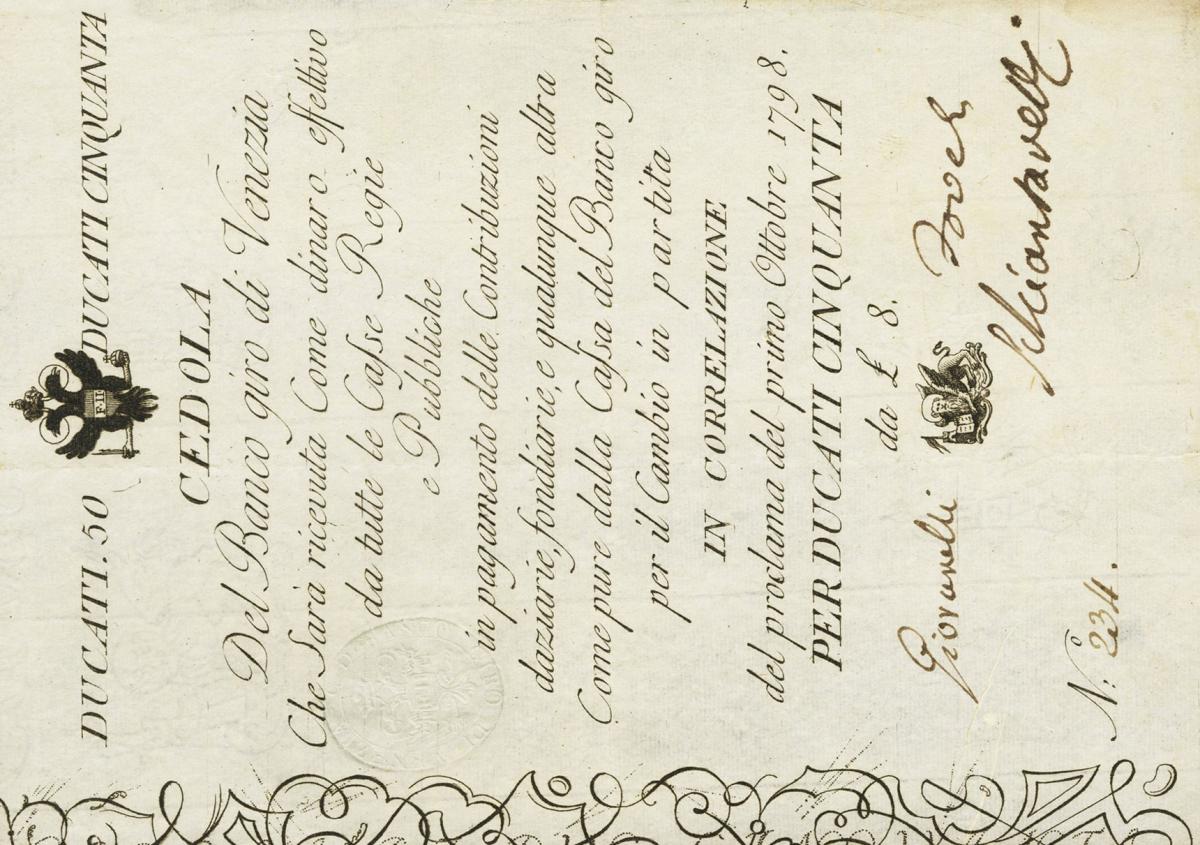 DUCATI. 50 DUCATI CINQUANTA
F II
CEDOLA
Del Banco giro di Venezia
Che Sarà ricevuta Come dinaro effettivo
da tutte le Caſse Regie
e Pubbliche
in pagamento delle Contribuzioni
daziarie, fondiarie, e qualunque altra
Come pure dalla Caſsa del Banco giro
per il Cambio in partita
IN CORRELAZIONE
del proclama del primo Ottobre 1798.
PER DUCATI CINQUANTA
da £ 8.
Giovanelli
N.º 234.